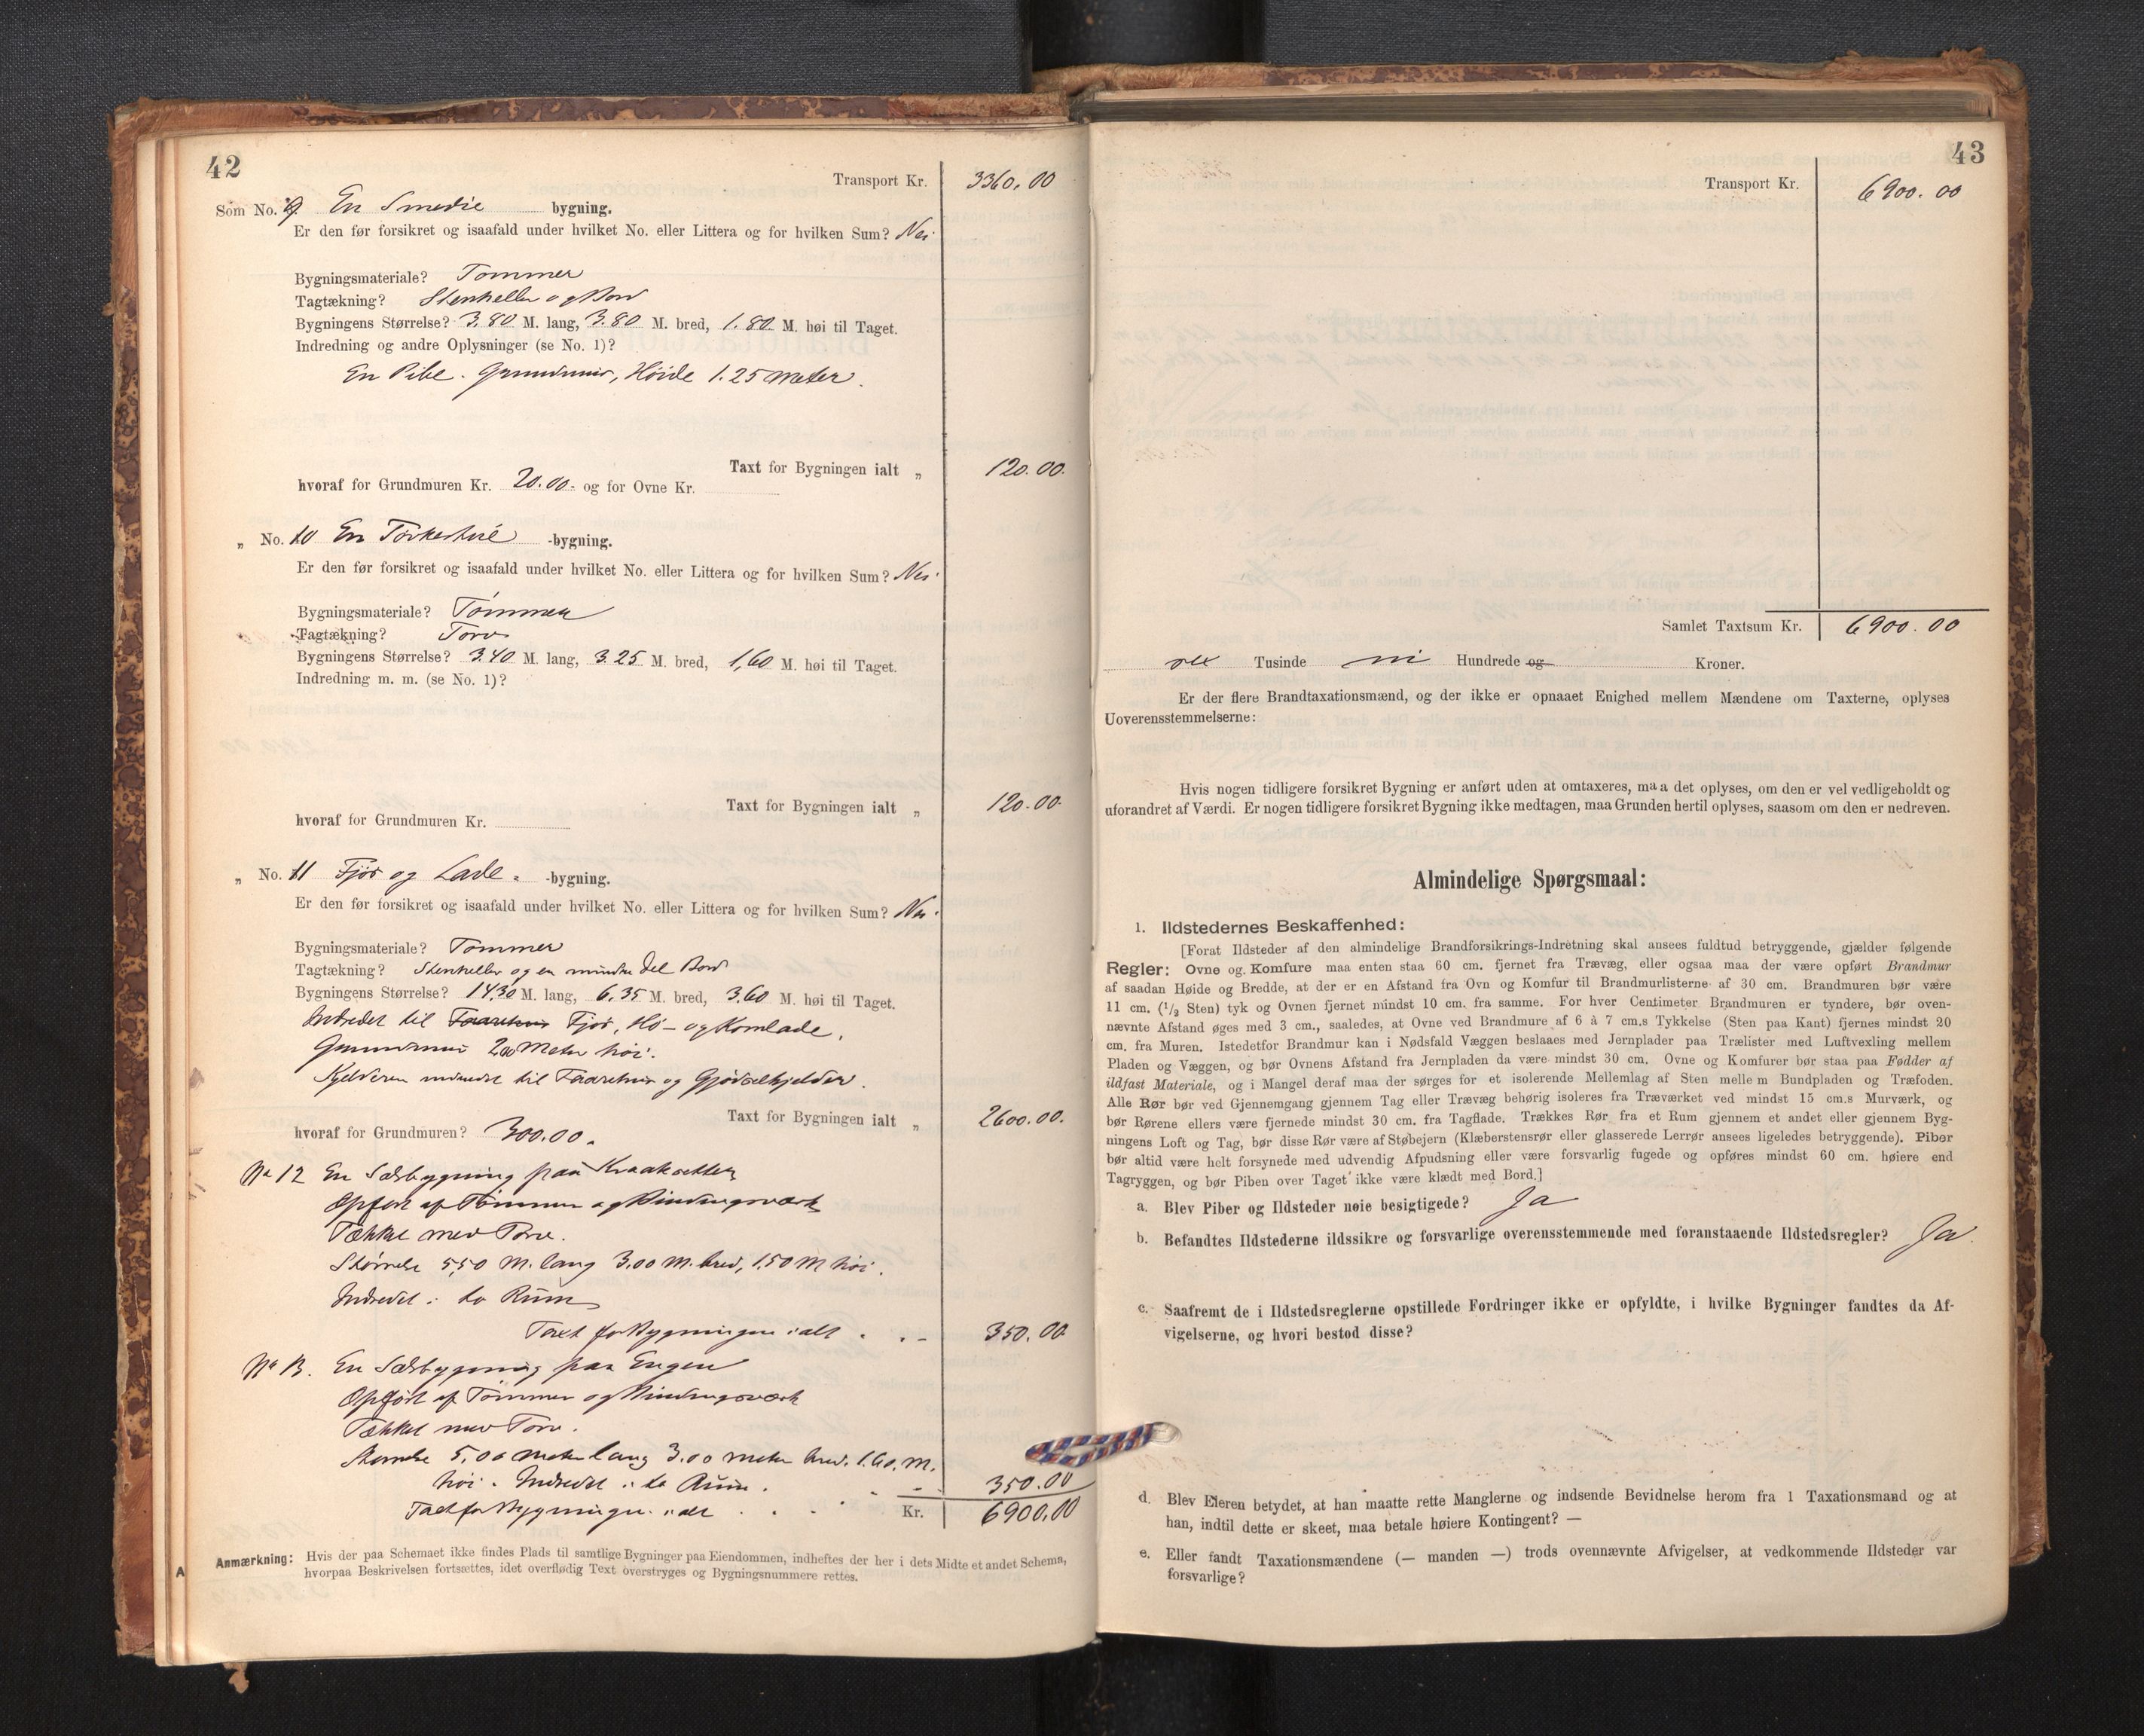 42
Transport Kr. 3360.00
Som No. 9 En Smedie bygning.
Er den før forsikret og isaafald under hvilket No. eller Littera og for hvilken Sum? Nei
Bygningsmateriale? Tømmer
Tagtækning? Stenheller og Bord
Bygningens Størrelse? 3.80 M. lang, 3.80 M. bred, 1.80 M. høi til Taget.
Indredning og andre Oplysninger (se No. 1)?
En Pibe. Grundmur, Høide 1.25 Meter.
Taxt for Bygningen ialt „ 120.00.
hvoraf for Grundmuren Kr. 20.00.- og for Ovne Kr.
„ No. 10 En -bygning.
Er den før forsikret og isaafald under hvilket No. eller Littera og for hvilken Sum? Nei
Bygningsmateriale? Tømmer
Tagtækning? Torv
Bygningens Størrelse? 3.40 M. lang, 3.25 M. bred, 1,60 M. høi til Taget.
Indredning m. m. (se No. 1)?
Taxt for Bygningen ialt „ 120.00.
hvoraf for Grundmuren Kr.
„ No. 11 Fjøs og Lade -bygning.
Er den før forsikret og isaafald under hvilket No. eller Littera og for hvilken Sum? Nei
Bygningsmateriale? Tømmer
Tagtækning? Stenheller og en mindre Del Bord
Bygningens Størrelse? 14.30 M. lang, 6.35 M. bred, 3.60 M. høi til Taget.
Indredet til Faarehus Fjøs, Hø- og Kornlade.
Grundmur 2.00 Meter høi.
Kjelderen indredet til Faarehus og Gjødselkjelder.
Taxt for Bygningen ialt „ 2600.00.
hvoraf for Grundmuren? 300.00.
No 12 En Sælsbygning paa
Opført af Tømmer og Bindingsværk
Tækket med Torv.
Størrelse 5,50 M. lang 3.00 M. bred, 1.50 M høi.
Indredet i to Rum
Taxt for Bygningen ialt . . - 350.00
No 13. En Sælsbygning paa Engen
Opført af Tømmer og Bindingsværk
Tækket med Torv.
Størrelse 5,00 meter lang 3.00 meter bred. 1.60. M.
høi. Indredet i to Rum. - - 350.00
Taxt for Bygningen ialt . . . Kr. 6900.00
Anmærkning: Hvis der paa Schemaet ikke findes Plads til samtlige Bygninger paa Eiendommen, indheftes der her i dets Midte et andet Schema,
hvorpaa Beskrivelsen fortsættes, idet overflødig Text overstryges og Bygningsnummere rettes.
A
43
Transport Kr. 6900.00
Samlet Taxtsum Kr. 6900.00
sex Tusinde ni Hundrede og Kroner.
Er der flere Brandtaxationsmænd, og der ikke er opnaaet Enighed mellem Mændene om Taxterne, oplyses
Uoverensstemmelserne:
Hvis nogen tidligere forsikret Bygning er anført uden at omtaxeres, maa det oplyses, om den er vel vedligeholdt og
uforandret af Værdi. Er nogen tidligere forsikret Bygning ikke medtagen, maa Grunden hertil oplyses, saasom om den er nedreven.
Almindelige Spørgsmaal:
1. Ildstedernes Beskaffenhed:
[Forat Ildsteder af den almindelige Brandforsikrings-Indretning skal ansees fuldtud betryggende, gjælder følgende
Regler: Ovne og Komfure maa enten staa 60 cm. fjernet fra Trævæg, eller ogsaa maa der være opført Brandmur
af saadan Høide og Bredde, at der er en Afstand fra Ovn og Komfur til Brandmurlisterne af 30 cm. Brandmuren bør være
11 cm. (1/2 Sten) tyk og Ovnen fjernet mindst 10 cm. fra samme. For hver Centimeter Brandmuren er tyndere, bør oven-
nævnte Afstand øges med 3 cm., saaledes, at Ovne ved Brandmure af 6 à 7 cm.s Tykkelse (Sten paa Kant) fjernes mindst 20
cm. fra Muren. Istedetfor Brandmur kan i Nødsfald Væggen beslaaes med Jernplader paa Trælister med Luftvexling mellem
Pladen og Væggen, og bør Ovnens Afstand fra Jernpladen da være mindst 30 cm. Ovne og Komfurer bør staa paa Fødder af
ildfast Materiale, og i Mangel deraf maa der sørges for et isolerende Mellemlag af Sten mellem Bundpladen og Træfoden.
Alle Rør bør ved Gjennemgang gjennem Tag eller Trævæg behørig isoleres fra Træværket ved mindst 15 cm.s Murværk, og
bør Rørene ellers være fjernede mindst 30 cm. fra Tagflade. Trækkes Rør fra et Rum gjennem et andet eller gjennem Byg-
ningens Loft og Tag, bør disse Rør være af Støbejern (Klæberstensrør eller glasserede Lerrør ansees ligeledes betryggende). Piber
bør altid være helt forsynede med udvendig Afpudsning eller være forsvarlig fugede og opføres mindst 60 cm. høiere end
Tagryggen, og bør Piben over Taget ikke være klædt med Bord.]
a. Blev Piber og Ildsteder nøie besigtigede? Ja
b. Befandtes Ildstederne ildssikre og forsvarlige overensstemmende med foranstaaende Ildstedsregler? Ja.
c. Saafremt de i Ildstedsreglerne opstillede Fordringer ikke er opfyldte, i hvilke Bygninger fandtes da Af-
vigelserne, og hvori bestod disse?
d. Blev Eieren betydet, at han maatte rette Manglerne og indsende Bevidnelse herom fra 1 Taxationsmand og at
han, indtil dette er skeet, maa betale høiere Kontingent? —
e. Eller fandt Taxationsmændene (— manden —) trods ovennævnte Afvigelser, at vedkommende Ildsteder var
forsvarlige?